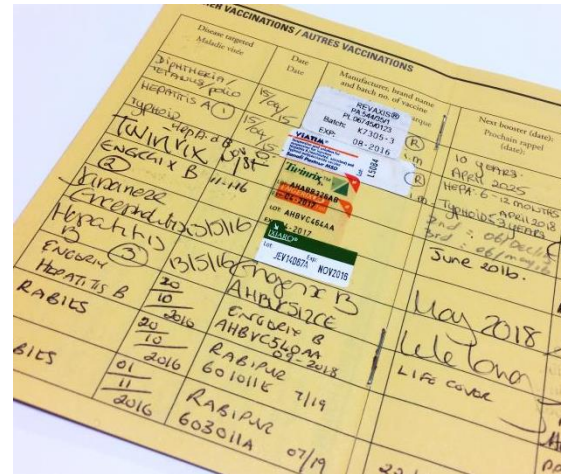 OTHER VACCINATIONS / AUTRES VACCINATIONS
Disease targeted
Maladie visée
Date
Date
Manufacturer, brand name
and batch no. of vaccine
Next booster (date):
Prochain rappel
(date):
DIPHTHERIA/
TETANUS/polio
15/04/15
REVAXIS®
PA 544/35/1
PL 06745/0123
Batch: K7305-3
EXP: 08-2016
10 YEARS.
APRIL 2025
HEPATITIS A 1
15/04/15
VIATIM®
HEPA: 6-12 MONTHS
Typhoid
TYPHOID 3 YEARS
APRIL 2018
TWINRIX 1st
Twinrix
AHABB326AB
ENGERIX B
2
LOT AHBVC464AA
-2017
Japanese
Encephalitis
13/5/16
IXIARO®
Lot JEV14D67A Exp: NOV2016
June 2016.
Hepatitis
B 3
13/5/16
Engerix B
May 2018
ENGERIX
HEPATITIS B
20
10
2016
ENGERIX B
AHBVC540AA
08-2018
LIFE COVER
RABIES
20
10
2016
RABIPUR
601011E 7/19
01
11
2016
RABIPUR
603011A 07/19